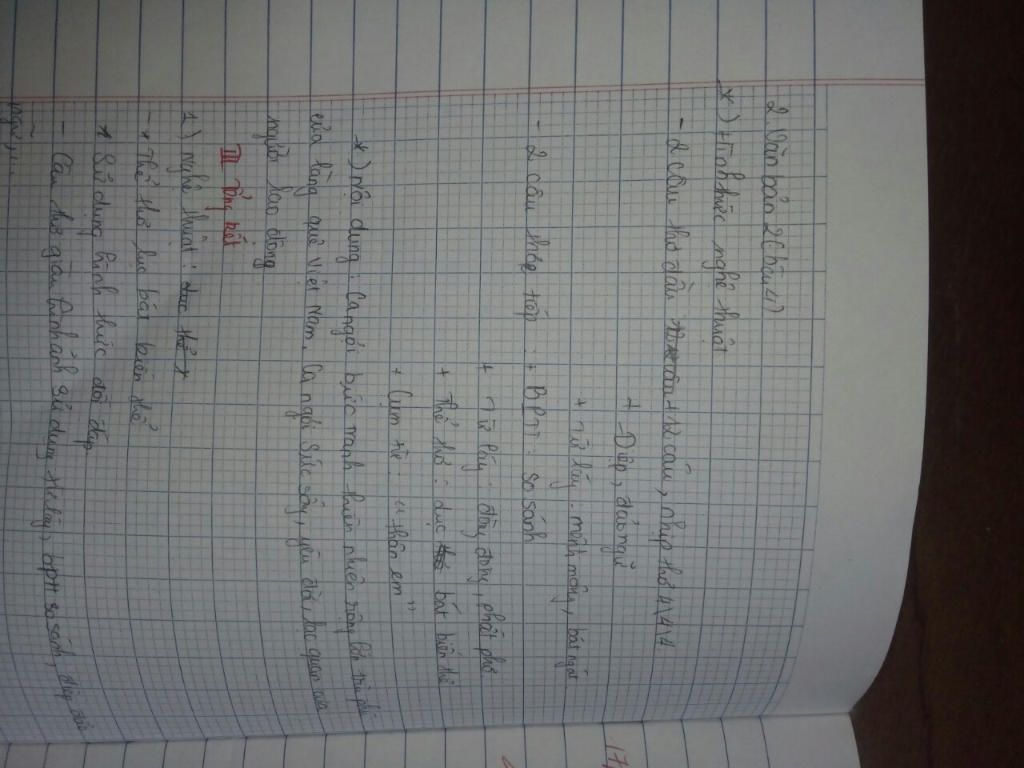 2. Văn bản 2 (bài 4)
*) Hình thức nghệ thuật
- 2 câu thơ đầu 12 câu, nhịp thơ 4/4/4
+ Điệp, đảo ngữ
+ Từ láy: mênh mông, bát ngát
- 2 câu thơ tiếp: + BPTT: so sánh
+ Từ láy: đòng đòng, phất phơ
+ thể thơ: lục bát biến thể
+ Cụm từ: "thân em"
*) Nội dung: Ca ngợi bức tranh thiên nhiên rộng lớn, trù phú
của làng quê Việt Nam. Ca ngợi sức sống, yêu đời, lạc quan của
người lao động
III Tổng kết
1) Nghệ thuật:
- * Thể thơ lục bát biến thể
* Sử dụng hình thức đối đáp
- Câu thơ giàu hình ảnh sử dụng từ láy, bptt so sánh, điệp, đảo
ngữ,
17,